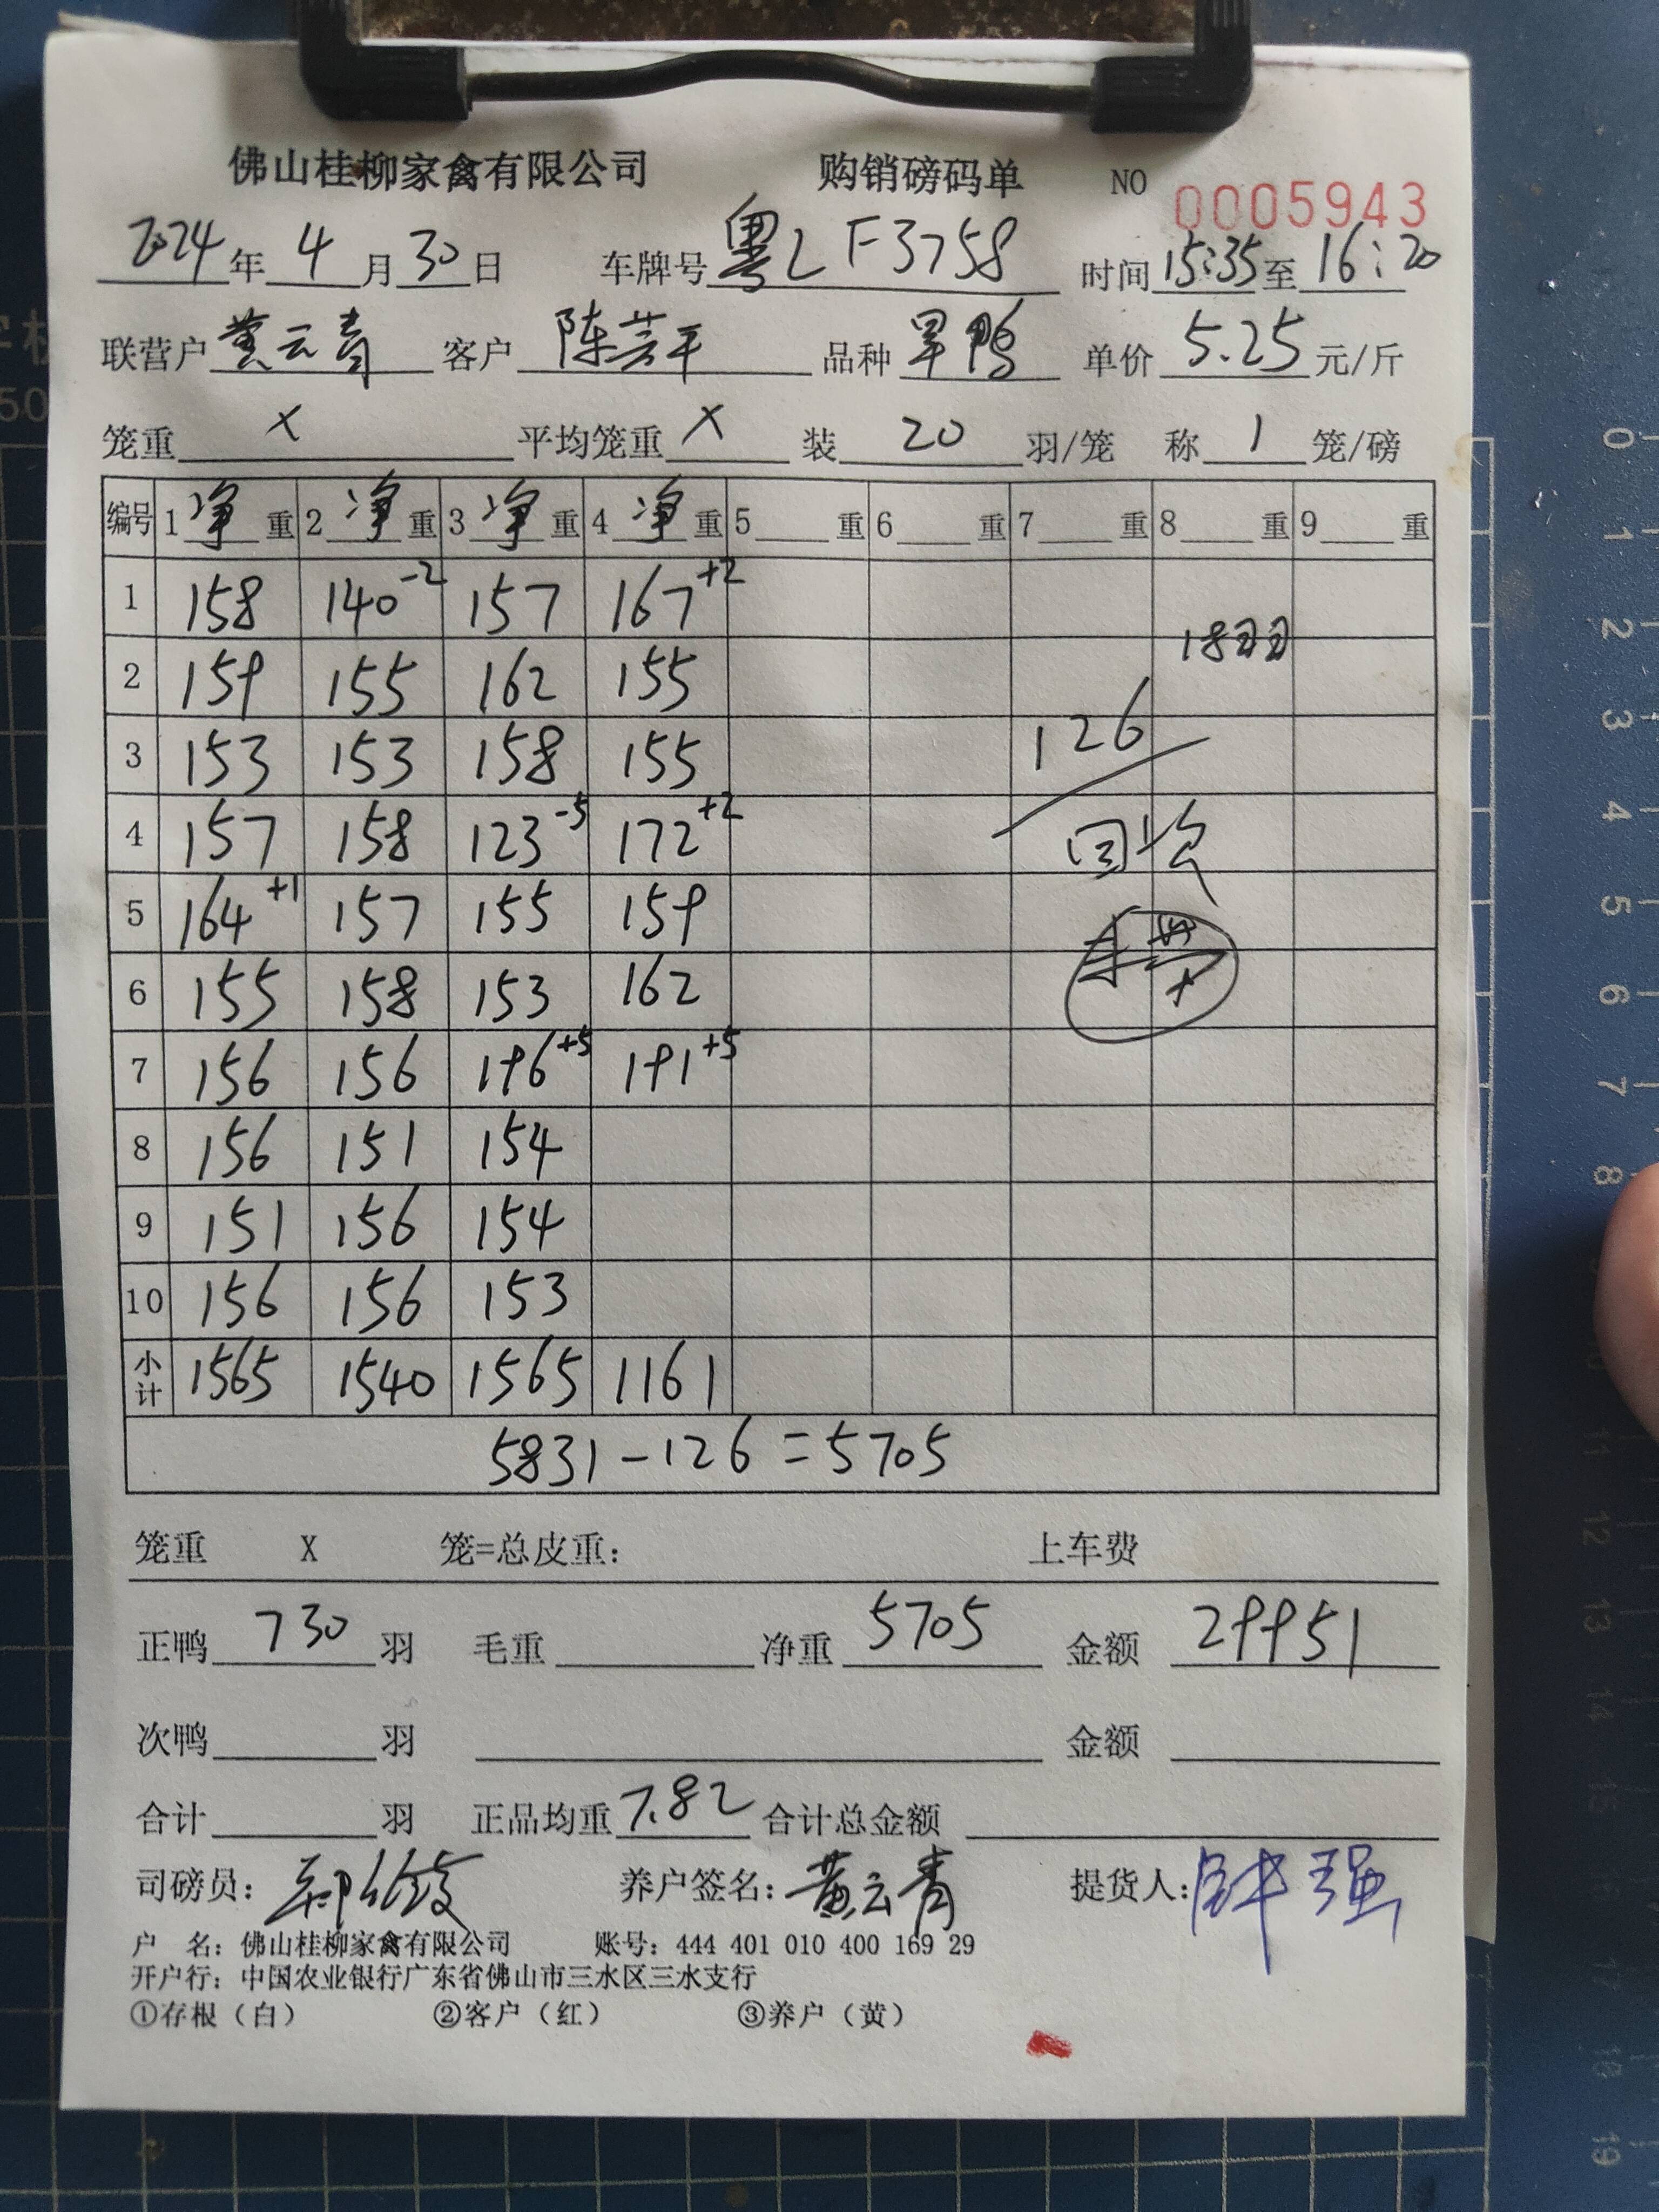 佛山桂柳家禽有限公司 购销磅码单 NO 0005943
2024年 4月 30日 车牌号 粤LF3758 时间 15:35 至 16:20
联营户 黄云青 客户 陈芸平 品种 旱鸭 单价 5.25 元/斤
笼重 X 平均笼重 X 装 20 羽/笼 称 1 笼/磅
编号 1净重 2净重 3净重 4净重 5重 6重 7重 8重 9重
1 158 140-2 157 167+2
18羽
2 159 155 162 155
3 153 153 158 155 126
4 157 158 123-5 172+2 回
5 164+1 157 155 159
6 155 158 153 162
7 156 156 196+5 191+5
8 156 151 154
9 151 156 154
10 156 156 153
小计 1565 1540 1565 1161
5831-126=5705
笼重 X 笼=总皮重: 上车费
正鸭 730 羽 毛重 净重 5705 金额 29951
次鸭 羽 金额
合计 羽 正品均重 7.82 合计总金额
司磅员: 养户签名: 黄云青 提货人: 强
户 名: 佛山桂柳家禽有限公司 账号: 444 401 010 400 169 29
开户行: 中国农业银行广东省佛山市三水区三水支行
①存根（白） ②客户（红） ③养户（黄）
0
1
2
3
4
5
6
7
8
11
12
13
14
15
16
17
18
19
50